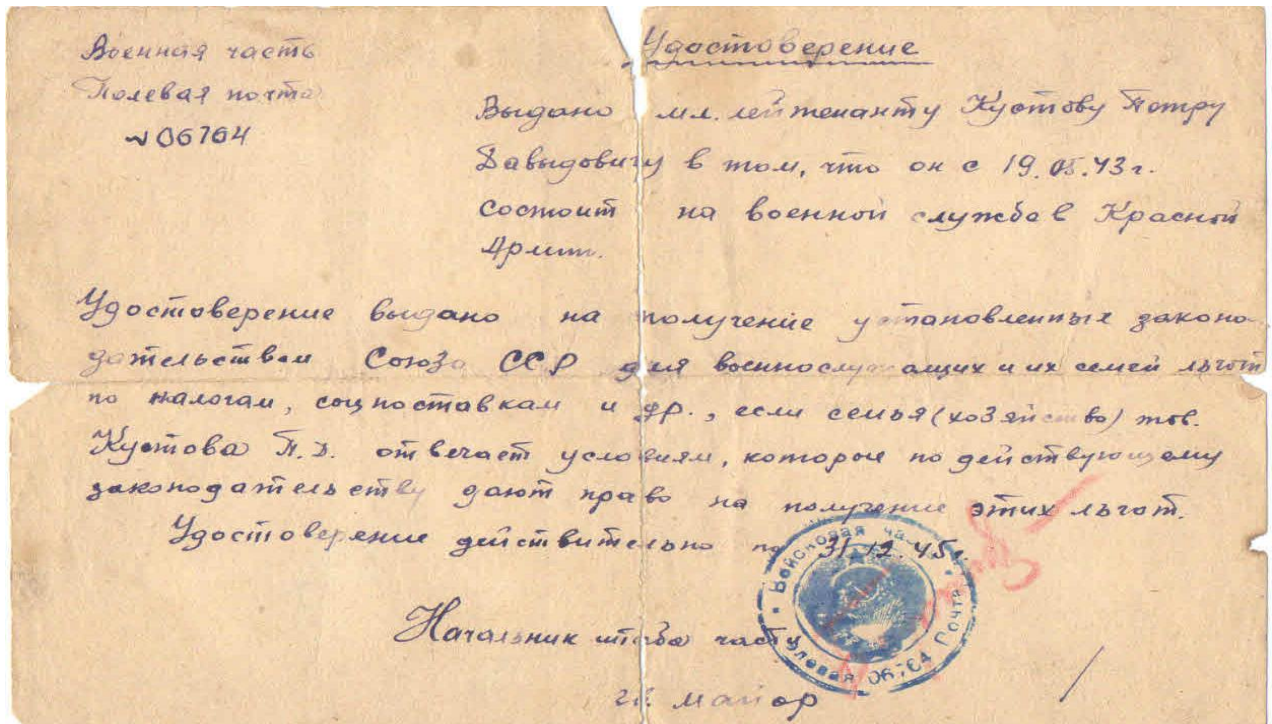 Военная часть
Полевая почта
№ 06764
Удостоверение
Выдано мл. лейтенанту Кустову Петру
Давыдовичу в том, что он с 19.05.43 г.
состоит на военной службе в Красной
Армии.
Удостоверение выдано на получение установленных законо-
дательством Союза ССР для военнослужащих и их семей льгот
по налогам, соцпоставкам и др., если семья (хозяйство) тов.
Кустова П.Д. отвечает условиям, которые по действующему
законодательству дают право на получение этих льгот.
Удостоверение действительно по 31.12.45 г.
Начальник штаба части
гв. майор
Войсковая часть
Полевая Почта 06764